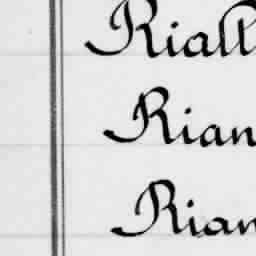 Riall
Rian
Rian